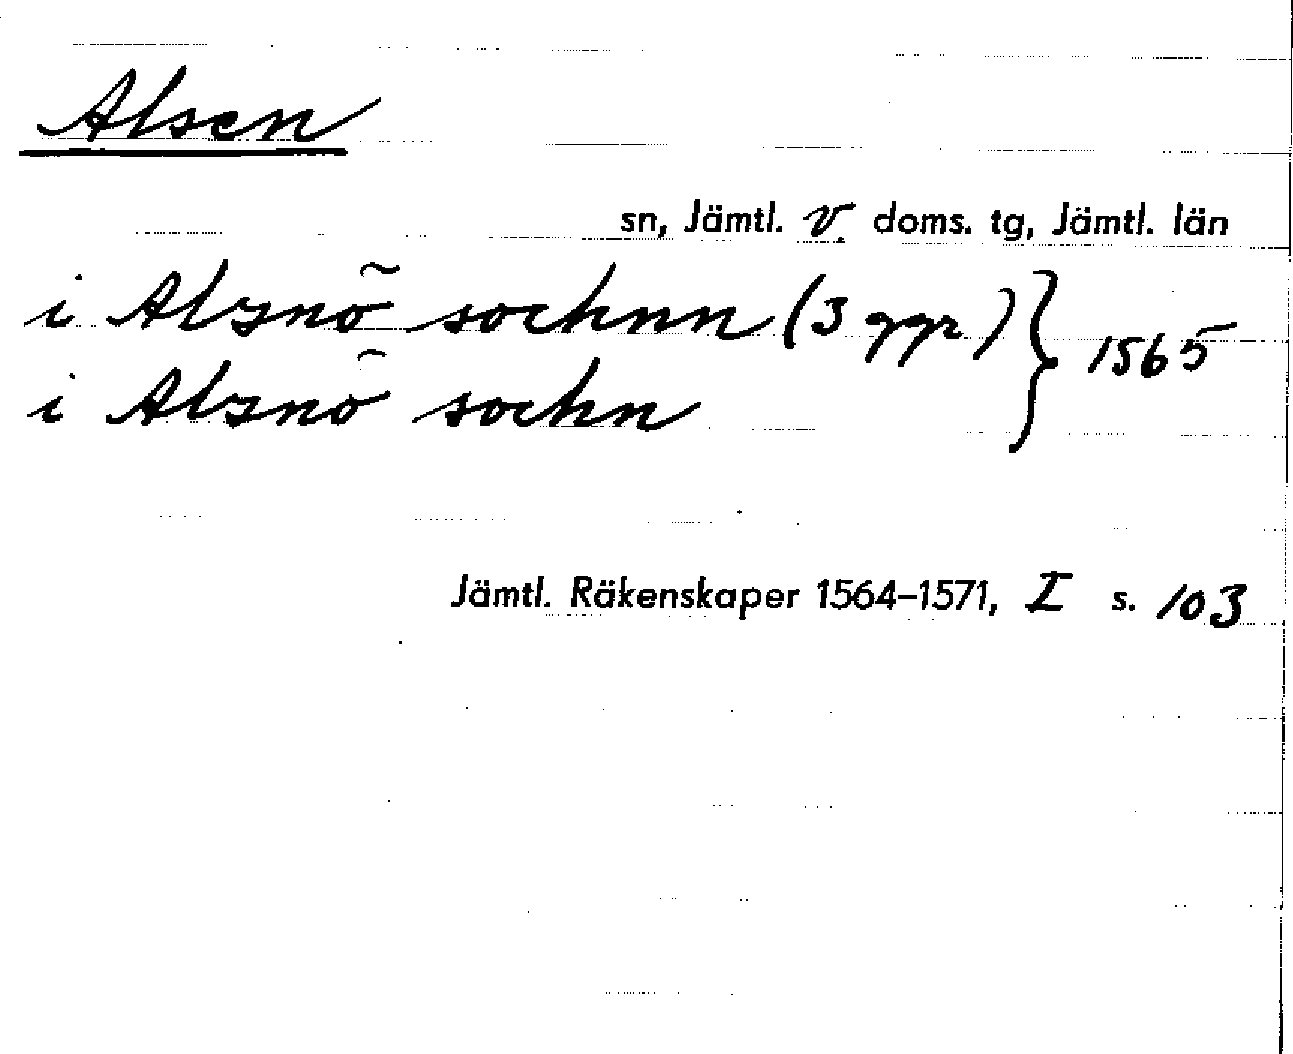 Alsen
sn, Jämtl. v. doms. tg, Jämtl. län
i Alznõ sochnn (3 ggr) } 1565
i Alznõ sochn
Jämtl. Räkenskaper 1564–1571, I s. 103